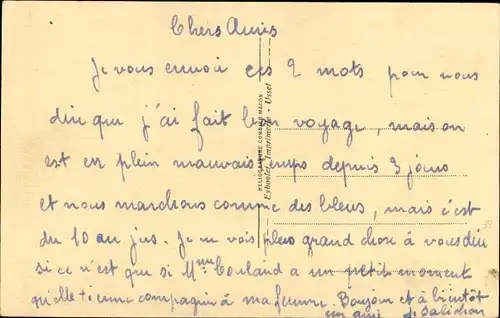 Chers Amis
Je vous envoi ces 2 mots pour vous
dire que j'ai fait bon voyage, mais on
est en plein mauvais temps depuis 3 jours
et nous marchons comme des bleus, mais c'est
du 10 au jus. Je ne vois plus grand chose à vous dire
si ce n'est que si Mme a un petit moment
qu'elle tienne compagnie à ma femme. Bonjour et à bientôt
un ami
HELIOGRAVURE COMBIER MACON
Eyboulet, Imprimerie - Ussel